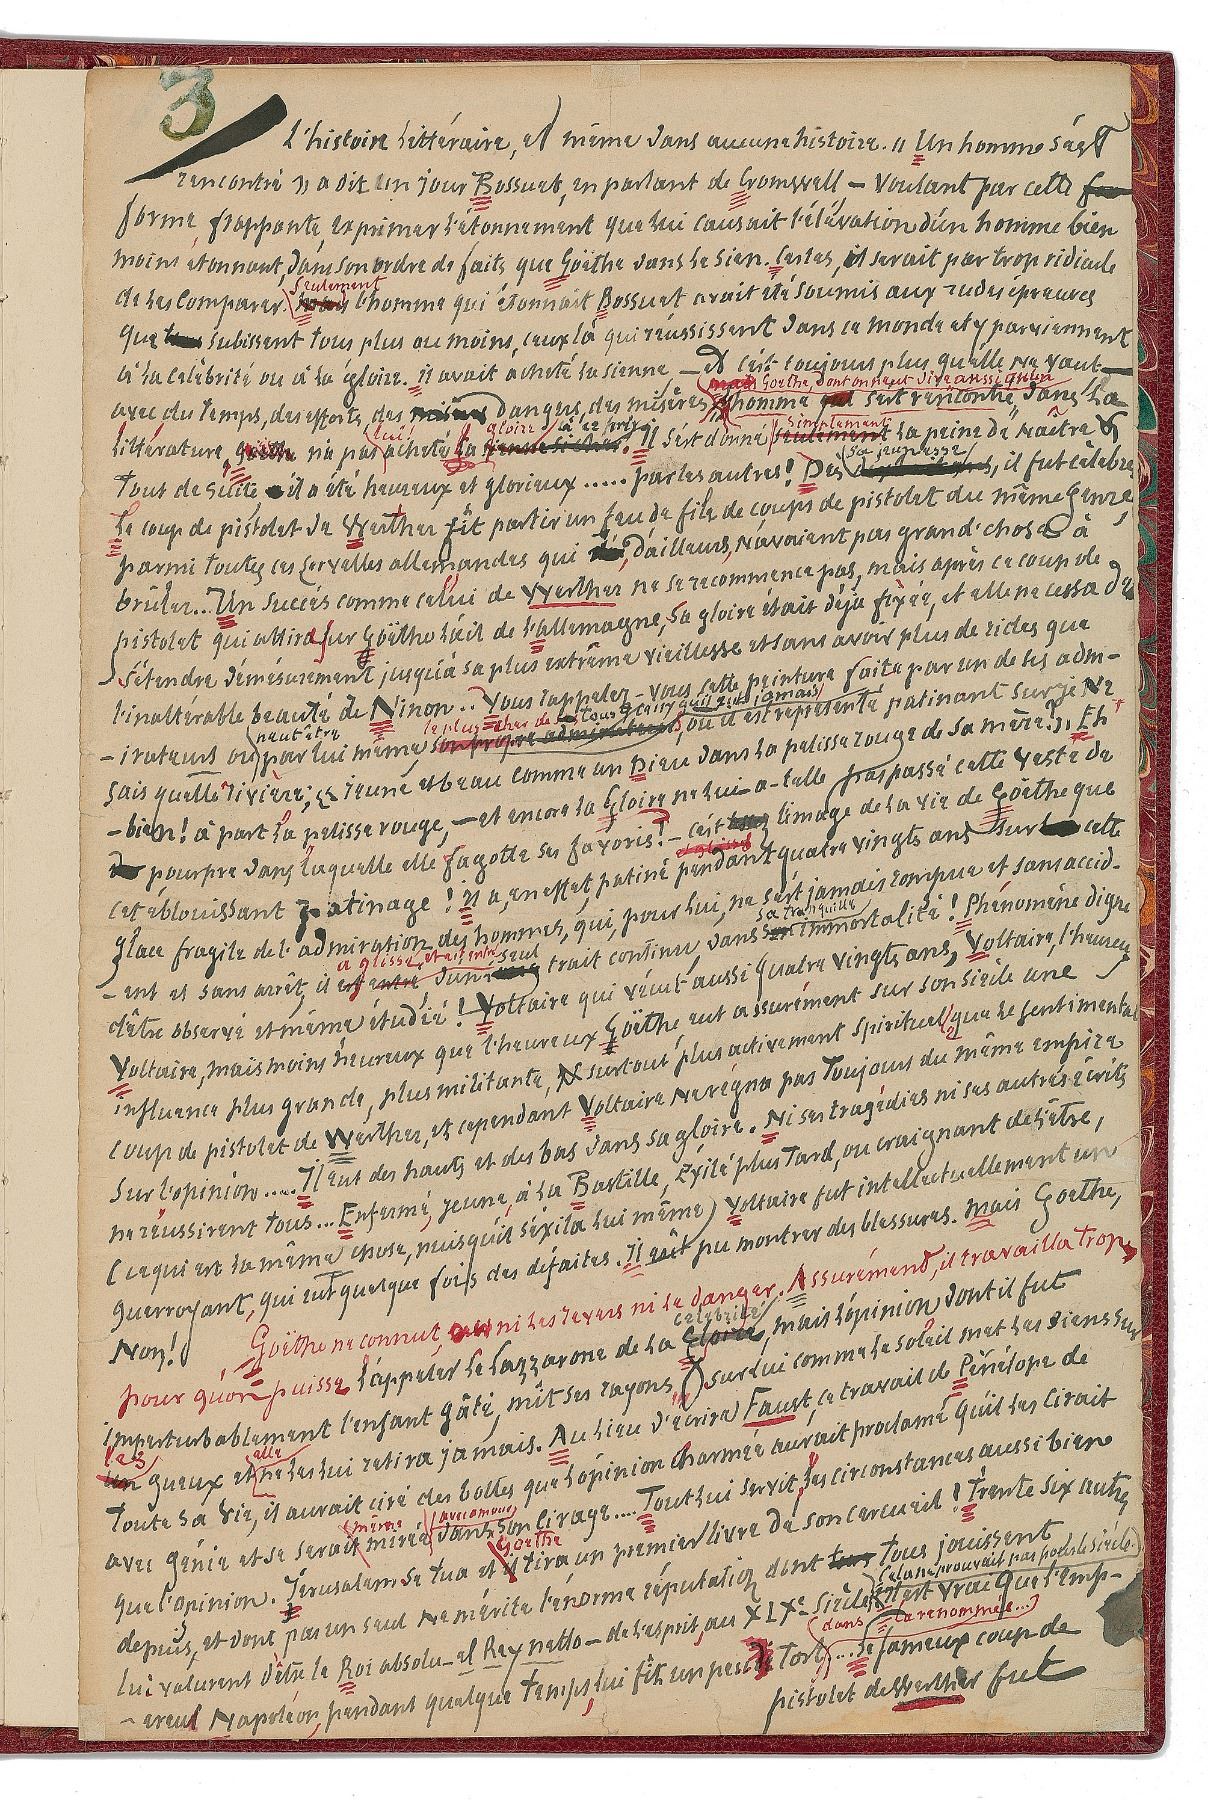 3
L'histoire littéraire, et même dans aucune histoire. « Un homme s'est
rencontré » a dit un jour Bossuet, en parlant de Cromwell — voulant par cette
forme, frappante, exprimer l'étonnement que lui causait l'élévation d'un homme bien
moins étonnant, dans son ordre de faits que Goëthe dans le sien. Certes, il serait par trop ridicule
seulement
de les comparer. mais l'homme qui étonnait Bossuet avait été soumis aux rudes épreuves
que subissent tous plus ou moins, ceux là qui réussissent dans ce monde et y parviennent
à la célébrité ou à la gloire. Il avait acheté la sienne — et c'est toujours plus qu'elle ne vaut —
mais Goethe, dont on peut dire aussi qu'un
avec du temps, des efforts, des dangers, des misères homme qui s'est rencontré » dans la
lui gloire à ce prix simplement
littérature, Goëthe n'a pas acheté la sienne si cher. Il s'est donné seulement la peine de naître &
sa jeunesse
tout de suite il a été heureux et glorieux ..... par les autres ! Dès, il fut célèbre
Le coup de pistolet de Werther fit partir un feu de file de coups de pistolet du même genre,
parmi toutes ces cervelles allemandes qui, d'ailleurs, n'avaient pas grand'chose à
brûler... Un succès comme celui de Werther ne se recommence pas, mais après ce coup de
pistolet qui attira sur Goëthe l'œil de l'allemagne, sa gloire était déjà fixée, et elle ne cessa de
s'étendre démesurément jusqu'à sa plus extrême vieillesse et sans avoir plus de rides que
l'inaltérable beauté de Ninon.. Vous rappelez-vous cette peinture faite par un de ses adm-
peut être le plus cher de tous ceux qu'il eut jamais
-irateurs ou par lui même, son propre admirateur, où il est représenté patinant sur je ne
sais quelle rivière, jeune et beau comme un Dieu dans la pelisse rouge de sa mère ?.. Eh
-bien ! à part la pelisse rouge, — et encore la Gloire ne lui a-t-elle pas passé cette veste de
pourpre dans laquelle elle fagotte ses favoris ! — c'est l'image de la vie de Goëthe que
et glissé
cet éblouissant patinage ! Il a, en effet, patiné pendant quatre vingts ans sur cette
glace fragile de l'admiration des hommes, qui, pour lui, ne s'est jamais rompue et sans accid-
a glissé, et est entré seul sa tranquille
-ent et sans arrêt, il est entré d'un trait continu, dans son immortalité ! Phénomène digne
d'être observé et même étudié ! Voltaire qui vécut aussi quatre vingts ans, Voltaire, l'heureux
Voltaire, mais moins heureux que l'heureux Goëthe eut assurément sur son siècle une
influence plus grande, plus militante, & surtout plus activement spirituel que le sentimental
coup de pistolet de Werther, et cependant Voltaire ne régna pas toujours du même empire
sur l'opinion..... Il eut des hauts et des bas dans sa gloire. Ni ses tragédies ni ses autres écrits
ne réussirent tous... Enfermé, jeune, à la Bastille, Exilé plus tard, ou craignant de l'être,
(ce qui est la même chose, puisqu'il s'exila lui même) Voltaire fut intellectuellement un
guerroyant, qui eut quelque fois des défaites. Il eut pu montrer des blessures. Mais Goethe,
Non !
Goëthe ne connut, ni les revers ni le danger. Assurément, il travailla trop
célébrité
pour qu'on puisse l'appeler le lazzarone de la Gloire, mais l'opinion dont il fut
imperturbablement l'enfant gâté, mit ses rayons sur lui comme le soleil met les siens sur
les elle
un gueux et ne les lui retira jamais. Au lieu d'écrire Faust, ce travail de Pénélope de
toute sa vie, il aurait ciré des bottes que l'opinion charmée aurait proclamé qu'il les cirait
même avec amour
avec génie et se serait mirée dans son cirage.... Tout lui servit, les circonstances aussi bien
Goethe
que l'opinion. Jérusalem se tua et il tira un premier livre de son cercueil ! Trente six autres
depuis, et dont pas un seul ne mérite l'énorme réputation dont tous jouissent
(cela ne prouvait pas pour le siècle)
lui valurent d'être le Roi absolu — el Rey netto — de l'esprit, au XIXe siècle. Il est vrai que l'emp-
(dans la renommée...)
-ereur Napoléon, pendant quelque temps, lui fit un peu de tort ... Le fameux coup de
pistolet de Werther fut